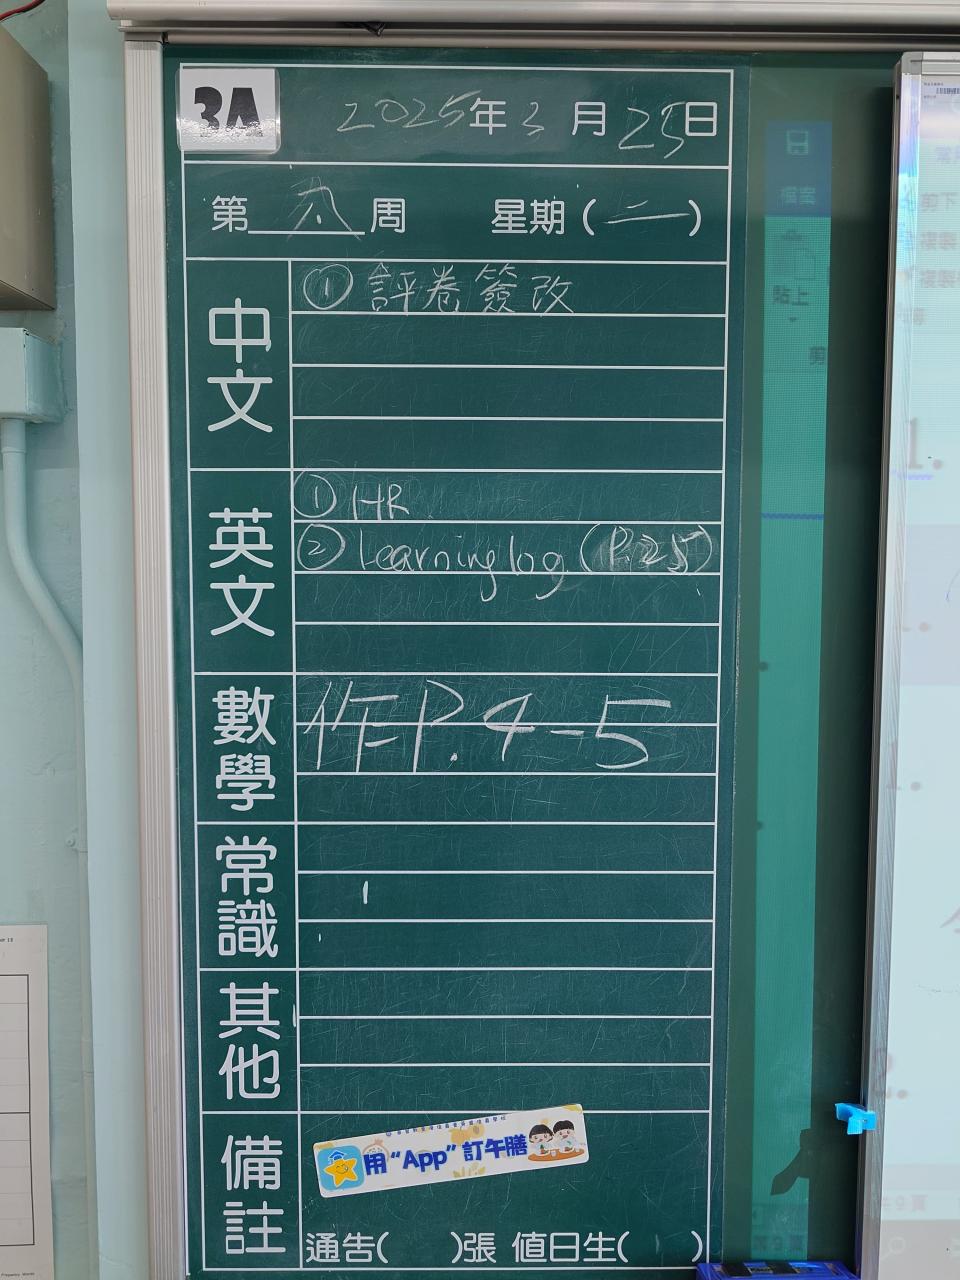 3A
2025年3月25日
第 六 周 星期(二)
中文
① 評卷簽改
英文
① HR
② Learning log (P.25)
數學
作 P.4-5
常識
其他
備註
用“App”訂午膳
通告( )張 值日生( )
檔案
貼上
剪
剪下
1.
1.
1.
2.